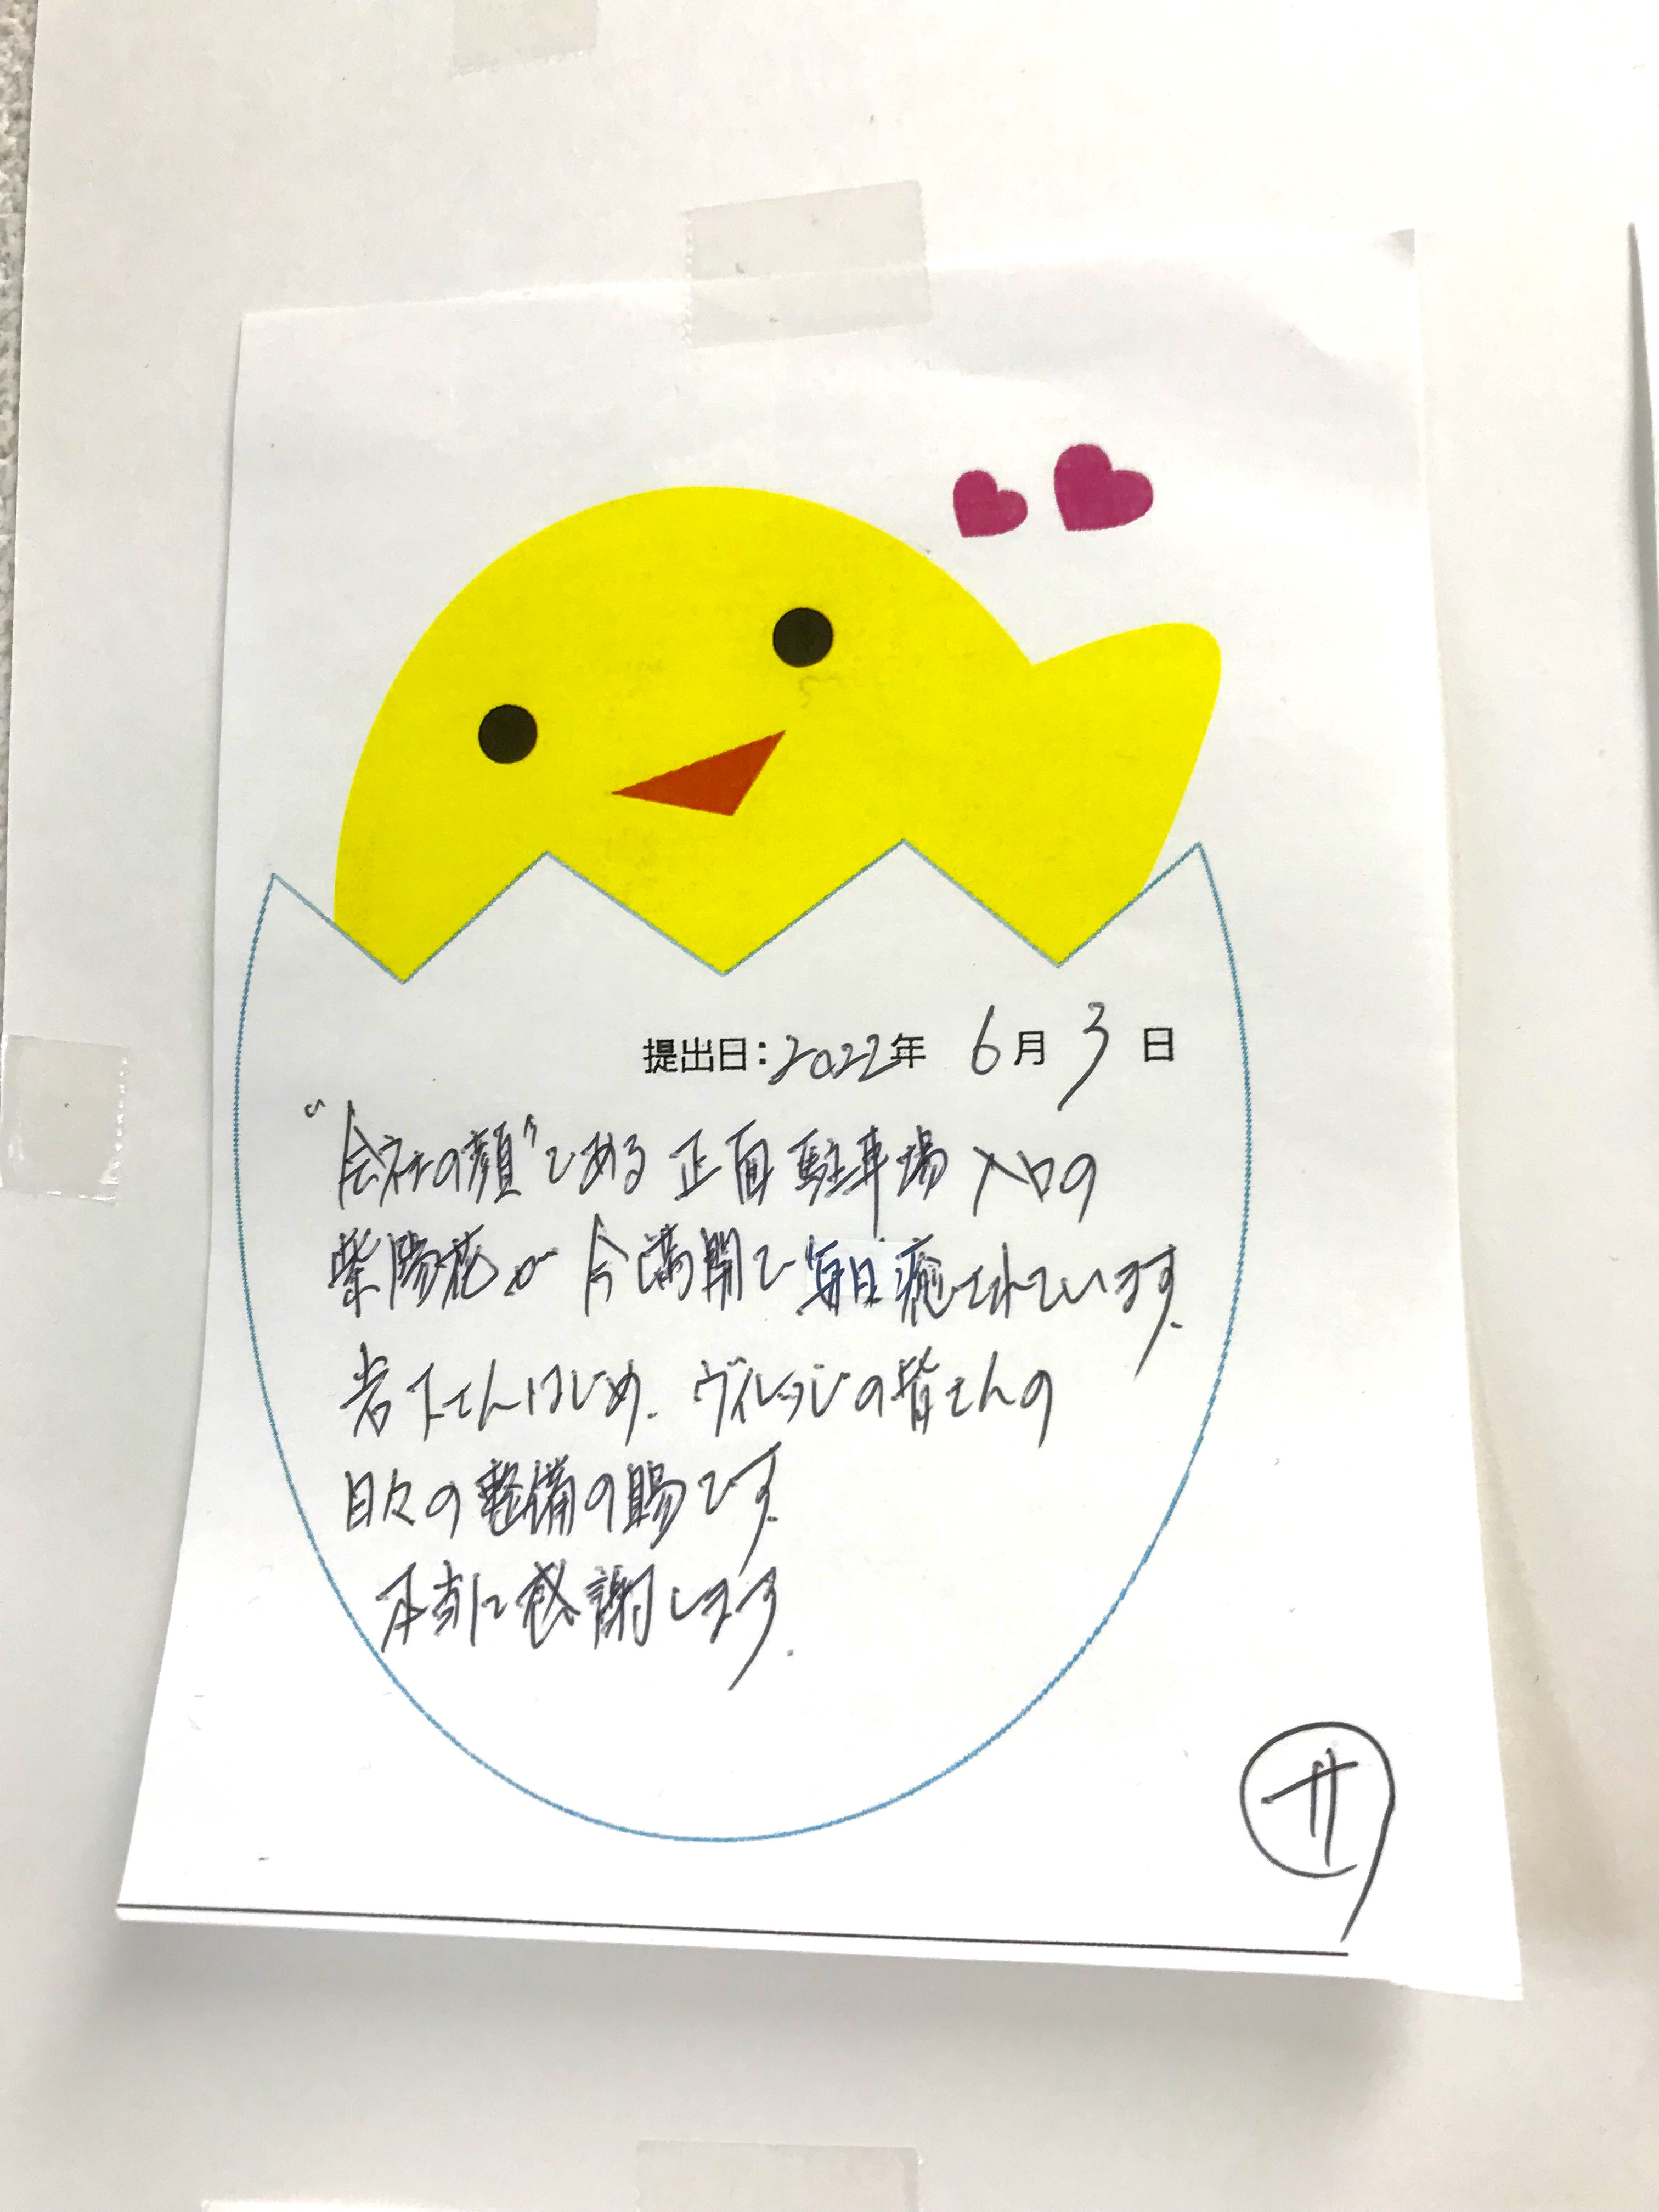 提出日：2022年 6月 3日
“会社の顔”である 正面 駐車場 入口の
紫陽花が 今満開で 毎日 癒されています。
岩下さんはじめ、ヴィレッジの皆さんの
日々の整備の賜です。
本当に感謝します。